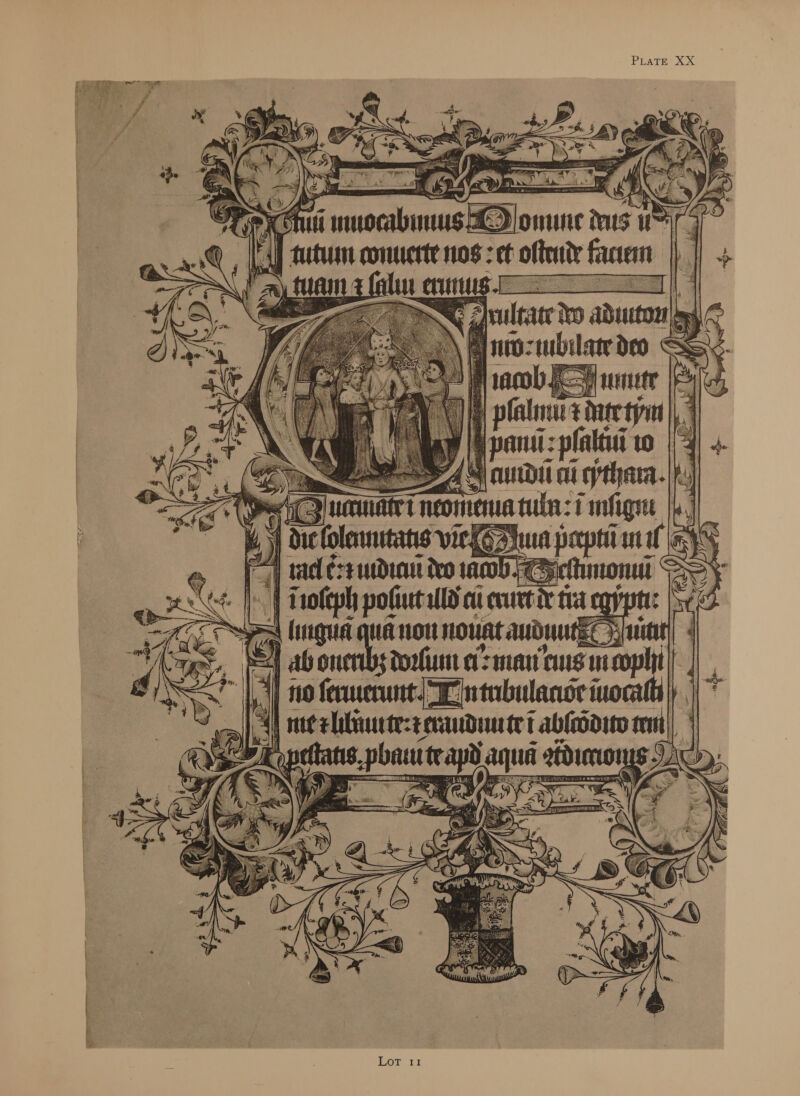 PLATE XX
tuū inuocabimus Domine deus u͛
tutum conuerte nos : et ostende faciem
tuam ⁊ salui erimus.
Exultate deo adiutori
nr̄o : iubilate deo
iacob. Sumite
psalmū ⁊ date tým
panū : psaltiū io
cundū cū cýthara.
Buccinate ī neomenia tuba : ī insigni
die solennitatis vr̄e Quia p̄ceptū in isr̄
rael ē : ⁊ iudiciū deo iacob. Testimoniū
ī ioseph posuit illd̄ cū exiret de tr̄a egýpti :
linguā quā non nouat audiuit Diūtit
ab oneribꝫ dorsum eiꝰ : manꝰ eius in cophı̄
no seruierunt. In tribulacōe īuocasti
me ⁊ liberaui te : ⁊ exaudiui te ī abscōdito tem
pestatis, pbaui te apd̄ aquā ɔ̄tdiccionis
LOT 11